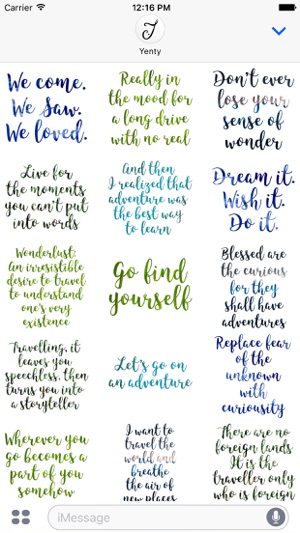 Carrier 12:16 PM
Yenty
We come.
We Saw.
We loved.
Really in
the mood for
a long drive
with no real
Don't ever
lose your
sense of
wonder
Live for
the moments
you can't put
into words
And then
I realized that
adventure was
the best way
to learn
Dream it.
Wish it.
Do it.
Wonderlust:
An irresistible
desire to travel
to understand
one's very
existence
Go find
yourself
Blessed are
the curious
for they
shall have
adventures
Travelling, it
leaves you
speechless, then
turns you into
a storyteller
Let's go on
an adventure
Replace fear
of the
unknown
with
curiousity
Wherever you
go becomes a
part of you
somehow
I want to
travel the
world and
breathe
the air of
new places
There are no
foreign lands
It is the
traveller only
who is foreign
iMessage